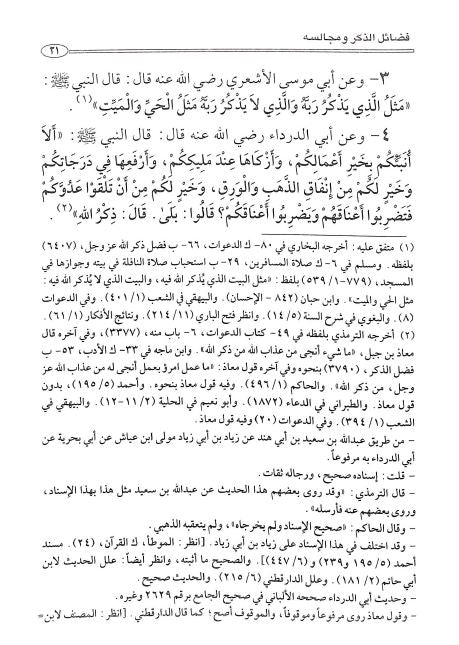 فضائل الذكر ومجالسه
٢١
٣- وعن أبي موسى الأشعري رضي الله عنه قال: قال النبي ﷺ:
«مَثَلُ الَّذِي يَذْكُرُ رَبَّهُ وَالَّذِي لاَ يَذْكُرُ رَبَّهُ مَثَلُ الْحَيِّ وَالْمَيِّتِ»(١).
٤- وعن أبي الدرداء رضي الله عنه قال: قال النبي ﷺ: «أَلاَ
أُنَبِّئُكُمْ بِخَيْرِ أَعْمَالِكُمْ، وَأَزْكَاهَا عِنْدَ مَلِيكِكُمْ، وَأَرْفَعِهَا فِي دَرَجَاتِكُمْ
وَخَيْرٍ لَكُمْ مِنْ إِنْفَاقِ الذَّهَبِ وَالْوَرِقِ، وَخَيْرٍ لَكُمْ مِنْ أَنْ تَلْقَوْا عَدُوَّكُمْ
فَتَضْرِبُوا أَعْنَاقَهُمْ وَيَضْرِبُوا أَعْنَاقَكُمْ؟ قَالُوا: بَلَىٰ. قَالَ: ذِكْرُ اللهِ»(٢).
(١) متفق عليه: أخرجه البخاري في ٨٠- ك الدعوات، ٦٦- ب فضل ذكر الله عز وجل، (٦٤٠٧)
بلفظه. ومسلم في ٦- ك صلاة المسافرين، ٢٩- ب استحباب صلاة النافلة في بيته وجوازها في
المسجد، (٧٧٩-١/ ٥٣٩) بلفظ: «مثل البيت الذي يُذكر الله فيه، والبيت الذي لا يُذكر الله فيه:
مثل الحي والميت». وابن حبان (٨٤٢ - الإحسان). والبيهقي في الشعب (١/ ٤٠١). وفي الدعوات
(٨). والبغوي في شرح السنة (٥/ ١٤). وانظر فتح الباري (١١/ ٢١٤). ونتائج الأفكار (١/ ٦١).
(٢) أخرجه الترمذي بلفظه في ٤٩- كتاب الدعوات، ٦- باب منه، (٣٣٧٧)، وفي آخره قال
معاذ بن جبل، «ما شيء أنجى من عذاب الله من ذكر الله». وابن ماجه في ٣٣- ك الأدب، ٥٣- ب
فضل الذكر، (٣٧٩٠) بنحوه وفي آخره قول معاذ: «ما عمل امرؤ بعمل أنجى له من عذاب الله عز
وجل، من ذكر الله». والحاكم (١/ ٤٩٦). وفيه قول معاذ بنحوه. وأحمد (٥/ ١٩٥)، بدون
قول معاذ. والطبراني في الدعاء (١٨٧٢). وأبو نعيم في الحلية (٢/ ١١-١٢). والبيهقي في
الشعب (١/ ٣٩٤). وفي الدعوات (٢٠) وفيه قول معاذ.
- من طريق عبدالله بن سعيد بن أبي هند عن زياد بن أبي زياد مولى ابن عياش عن أبي بحرية عن
أبي الدرداء به مرفوعاً.
- قلت: إسناده صحيح، ورجاله ثقات.
- قال الترمذي: «وقد روى بعضهم هذا الحديث عن عبدالله بن سعيد مثل هذا بهذا الإسناد،
وروى بعضهم عنه فأرسله».
- وقال الحاكم: «صحيح الإسناد ولم يخرجاه»، ولم يتعقبه الذهبي.
- وقد اختلف في هذا الإسناد على زياد بن أبي زياد. [انظر: الموطأ، ك القرآن، (٢٤). مسند
أحمد (٥/ ١٩٥ و٢٣٩) و (٦/ ٤٤٧)]. والصحيح ما أثبته، وانظر أيضاً: علل الحديث لابن
أبي حاتم (٢/ ١٨١). وعلل الدارقطني (٦/ ٢١٥). والحديث صحيح.
- وحديث أبي الدرداء صححه الألباني في صحيح الجامع برقم ٢٦٢٩ وغيره.
- وقول معاذ روي مرفوعاً وموقوفاً، والموقوف أصح؛ كما قال الدارقطني. [انظر: المصنف لابن=